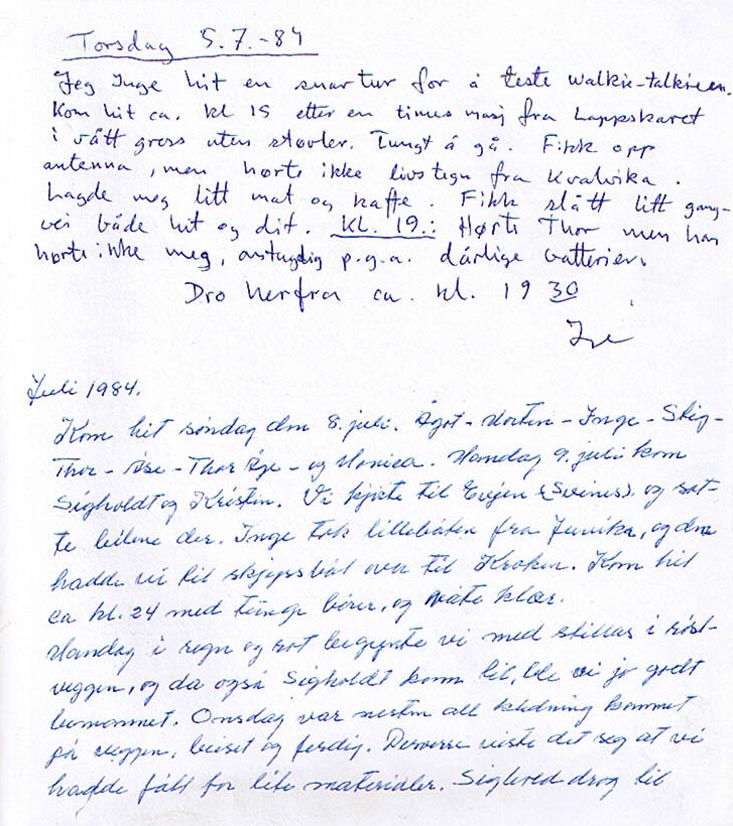 Torsdag 5.7.-84
Jeg Inge hit en snartur for å teste walkie-talkieen.
Kom hit ca. kl 15 etter en times marsj fra Lappskaret
i vått gress uten støvler. Tungt å gå. Fikk opp
antenna, men hørte ikke livstegn fra Kvalvika.
Lagde meg litt mat og kaffe. Fikk slått litt gang-
vei både hit og dit. KL. 19.: Hørte Thor men han
hørte ikke meg, antagelig p.g.a. dårlige batterier.
Dro herfra ca. kl. 19 30
Inge
Juli 1984.
Kom hit søndag den 8. juli. Ågot - Morten - Inge - Stig -
Thor - Åse - Thor Åge - og Monica. Mandag 9. juli kom
Sigholdt og Kristin. Vi kjørte til (Svines) og sat-
te bilene der. Inge tok lillebåten fra og den
hadde vi til skyssbåt over til Kroken. Kom hit
ca kl. 24 med tunge bører, og våte klær.
Mandag i regn og rot begynte vi med stillas i
veggen, og da også Sigholdt kom til, ble vi jo godt
bemannet. Onsdag var nesten all kledning kommet
på veggen, beiset og ferdig. Desverre viste det seg at vi
hadde fått for lite materialer. drog til